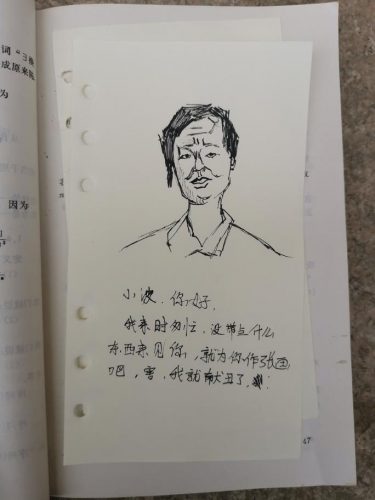 词“3推
成原来陈
为
因为
小波、你好.
我来时匆忙、没带点什么
东西来见你，就为你作张画
吧，害，我就献丑了.
67